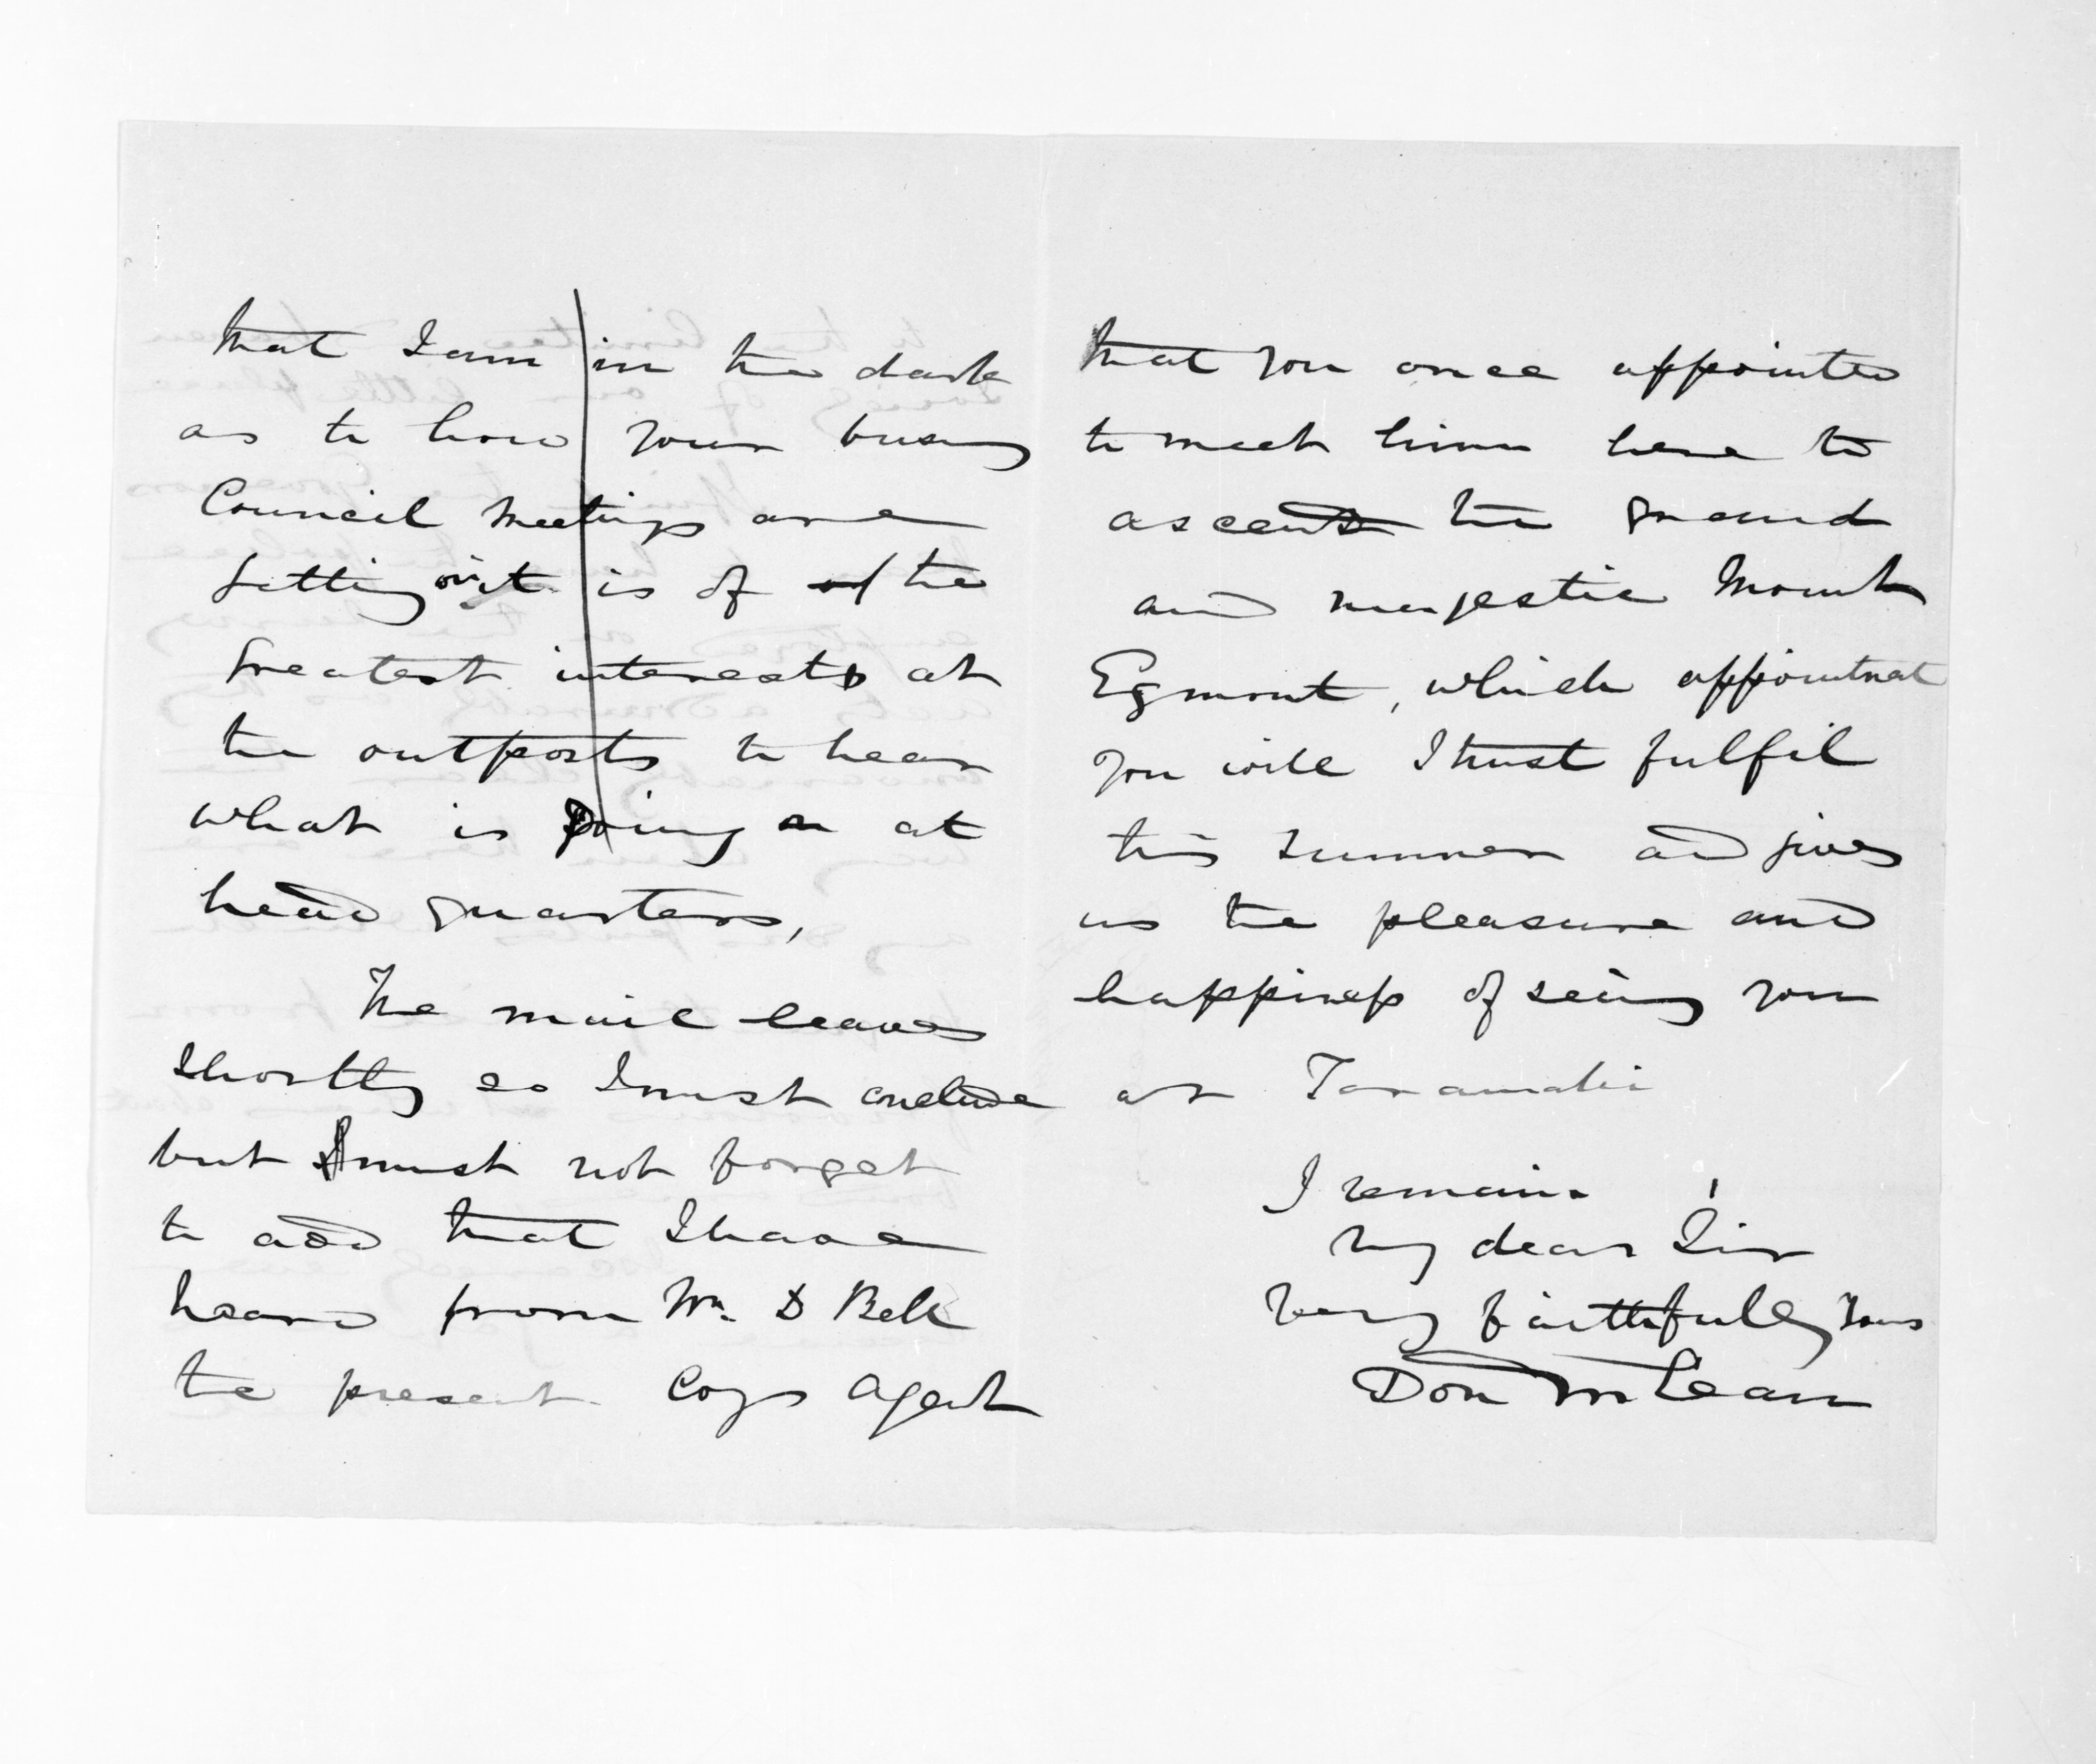 that I am in the dark
as to how your busy
Council meetings are
getting on it is of the
greatest interest at
the outposts to hear
what is going on at
head quarters,
The mail leaves
shortly so I must conclude
but I must not forget
to add that I have
heard from Wm. D Bell
the present Coys Agent
that you once appointed
to meet him here to
ascend the grand
and majestic Mount
Egmont, which appointmet
you will I trust fulfil
this summer and give
us the pleasure and
happiness of seeing you
at Taranaki
I remain
my dear Sir
very faithfully Yours
Don McLean